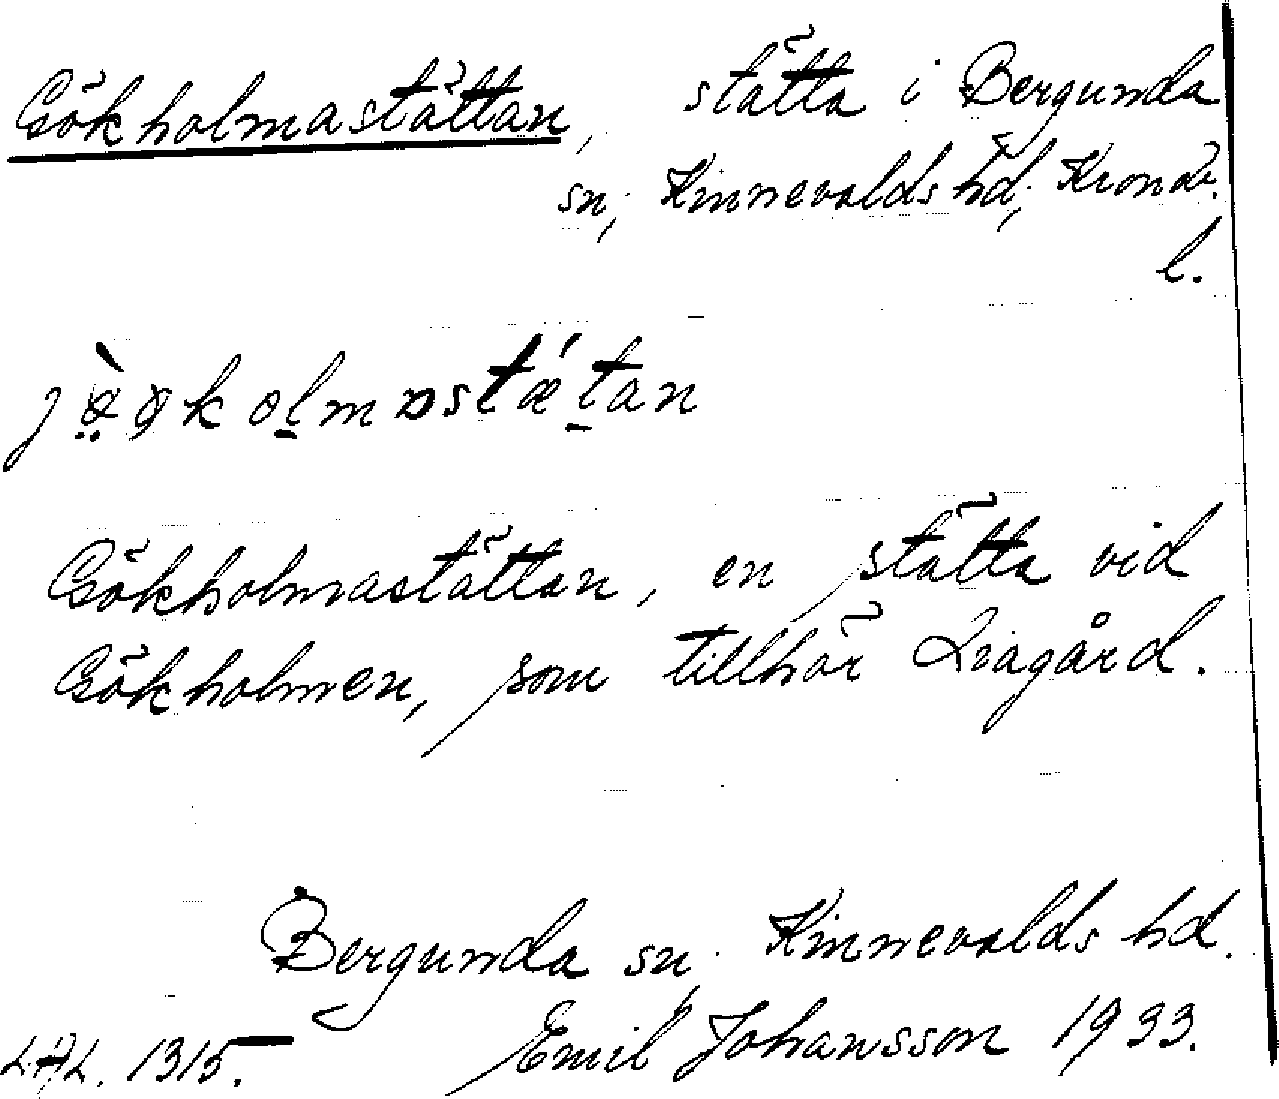 Gökholmastättan, stätta i Bergunda
sn, Kinnevalds hd, Kronob.
l.
Gökholmastättan, en stätta vid
Gökholmen, som tillhör Liagård.
Bergunda sn. Kinnevalds hd.
Emil Johansson 1933.
LAL. 1315.